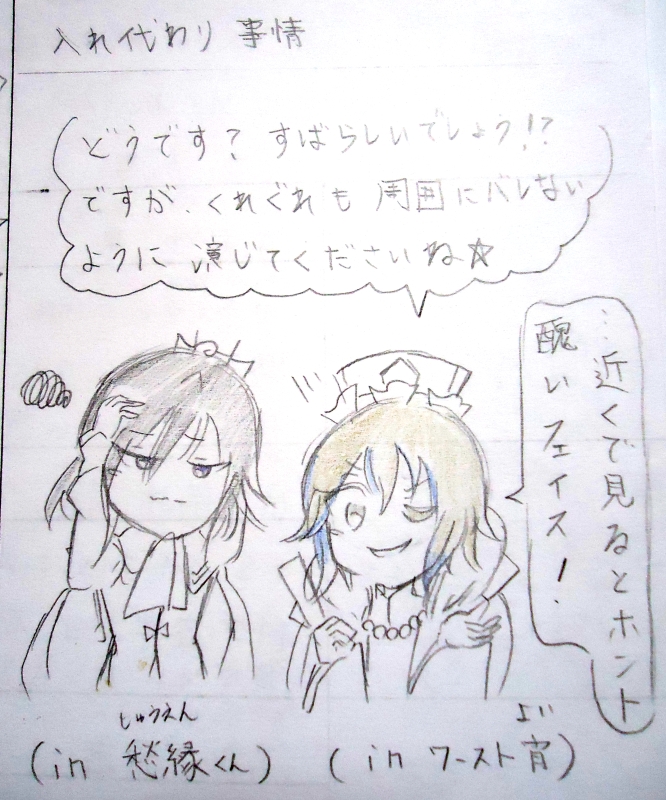 入れ代わり 事情
どうです? すばらしいでしょう!?
ですが、くれぐれも 周囲にバレない
ように 演じてくださいね☆
…近くで見るとホント
醜いフェイス!.
しゅうえん
(in 愁縁くん)
よい
(in ワースト宵)